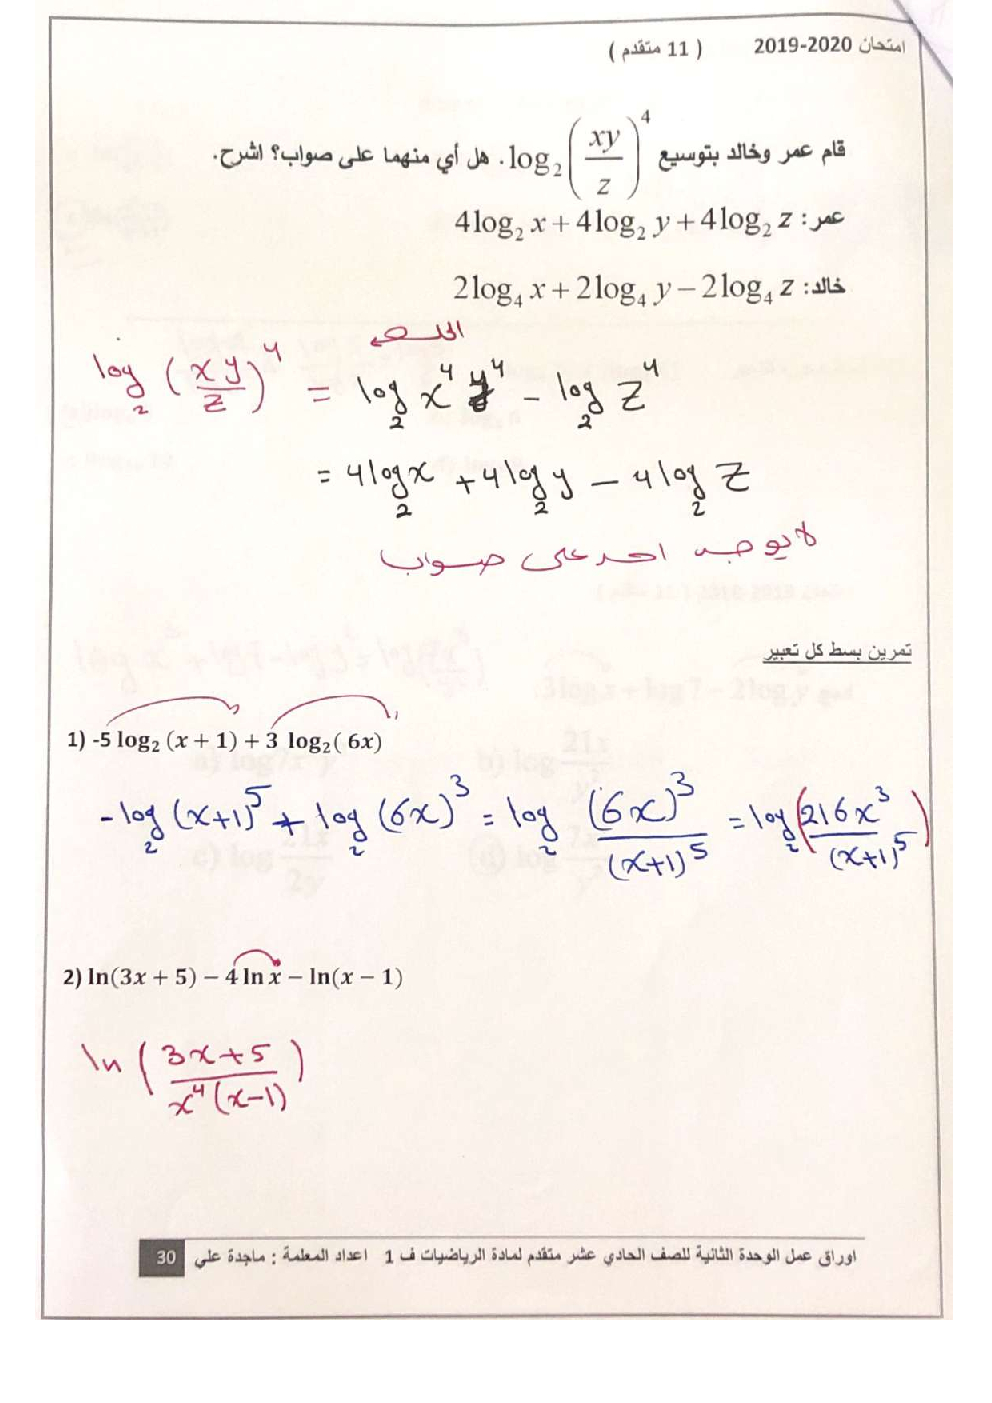 امتحان 2019-2020 ( 11 متقدم )
قام عمر وخالد بتوسيع log₂(xy/z)⁴. هل أي منهما على صواب؟ اشرح.
عمر: 4log₂ x + 4log₂ y + 4log₂ z
خالد: 2log₄ x + 2log₄ y − 2log₄ z
الحل
log₂ (xy/z)⁴ = log₂ x⁴ y⁴ − log₂ z⁴
= 4log₂ x + 4log₂ y − 4log₂ z
لا يوجد احد على صواب
تمرين بسط كل تعبير
1) -5 log₂ (x + 1) + 3 log₂( 6x)
-log₂ (x+1)⁵ + log₂ (6x)³ = log₂ (6x)³/(x+1)⁵ = log₂ (216x³/(x+1)⁵)
2) ln(3x + 5) − 4 ln x − ln(x − 1)
ln (3x+5/x⁴(x-1))
اوراق عمل الوحدة الثانية للصف الحادي عشر متقدم لمادة الرياضيات ف 1 اعداد المعلمة : ماجدة علي 30